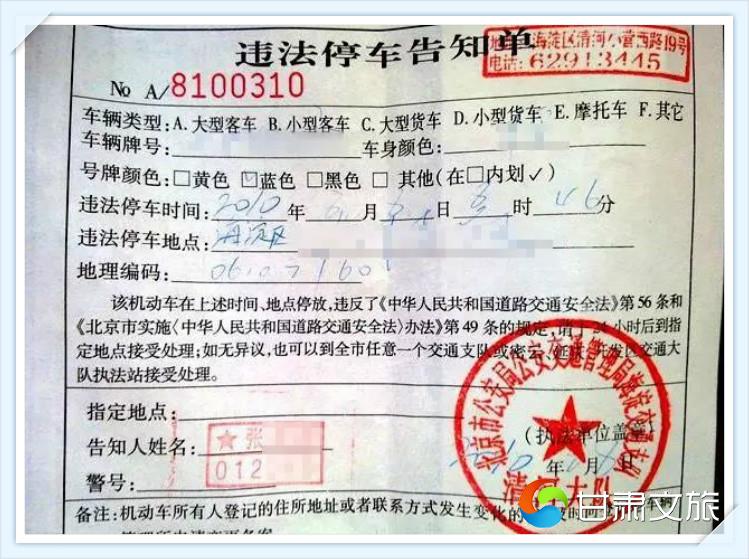 违法停车告知单
海淀区清河小营西路19号
电话:62913445
No A/8100310
车辆类型:A.大型客车 B.小型客车 C.大型货车 D.小型货车 E.摩托车 F.其它
车辆牌号: 车身颜色:
号牌颜色:□黄色 ☑蓝色 □黑色 □ 其他(在□内划✓)
违法停车时间:2010年 月 日 时46分
违法停车地点:海淀区
地理编码:
该机动车在上述时间、地点停放,违反了《中华人民共和国道路交通安全法》第56条和
《北京市实施〈中华人民共和国道路交通安全法〉办法》第49条的规定,请于24小时后到指
定地点接受处理;如无异议,也可以到全市任意一个交通支队或密云、延庆、开发区交通大
队执法站接受处理。
指定地点:
告知人姓名: 张
警号: 012
北京市公安局公安交通管理局海淀交通支队
(执法单位盖章)
年 月 日
备注:机动车所有人登记的住所地址或者联系方式发生变化的
甘肃文旅